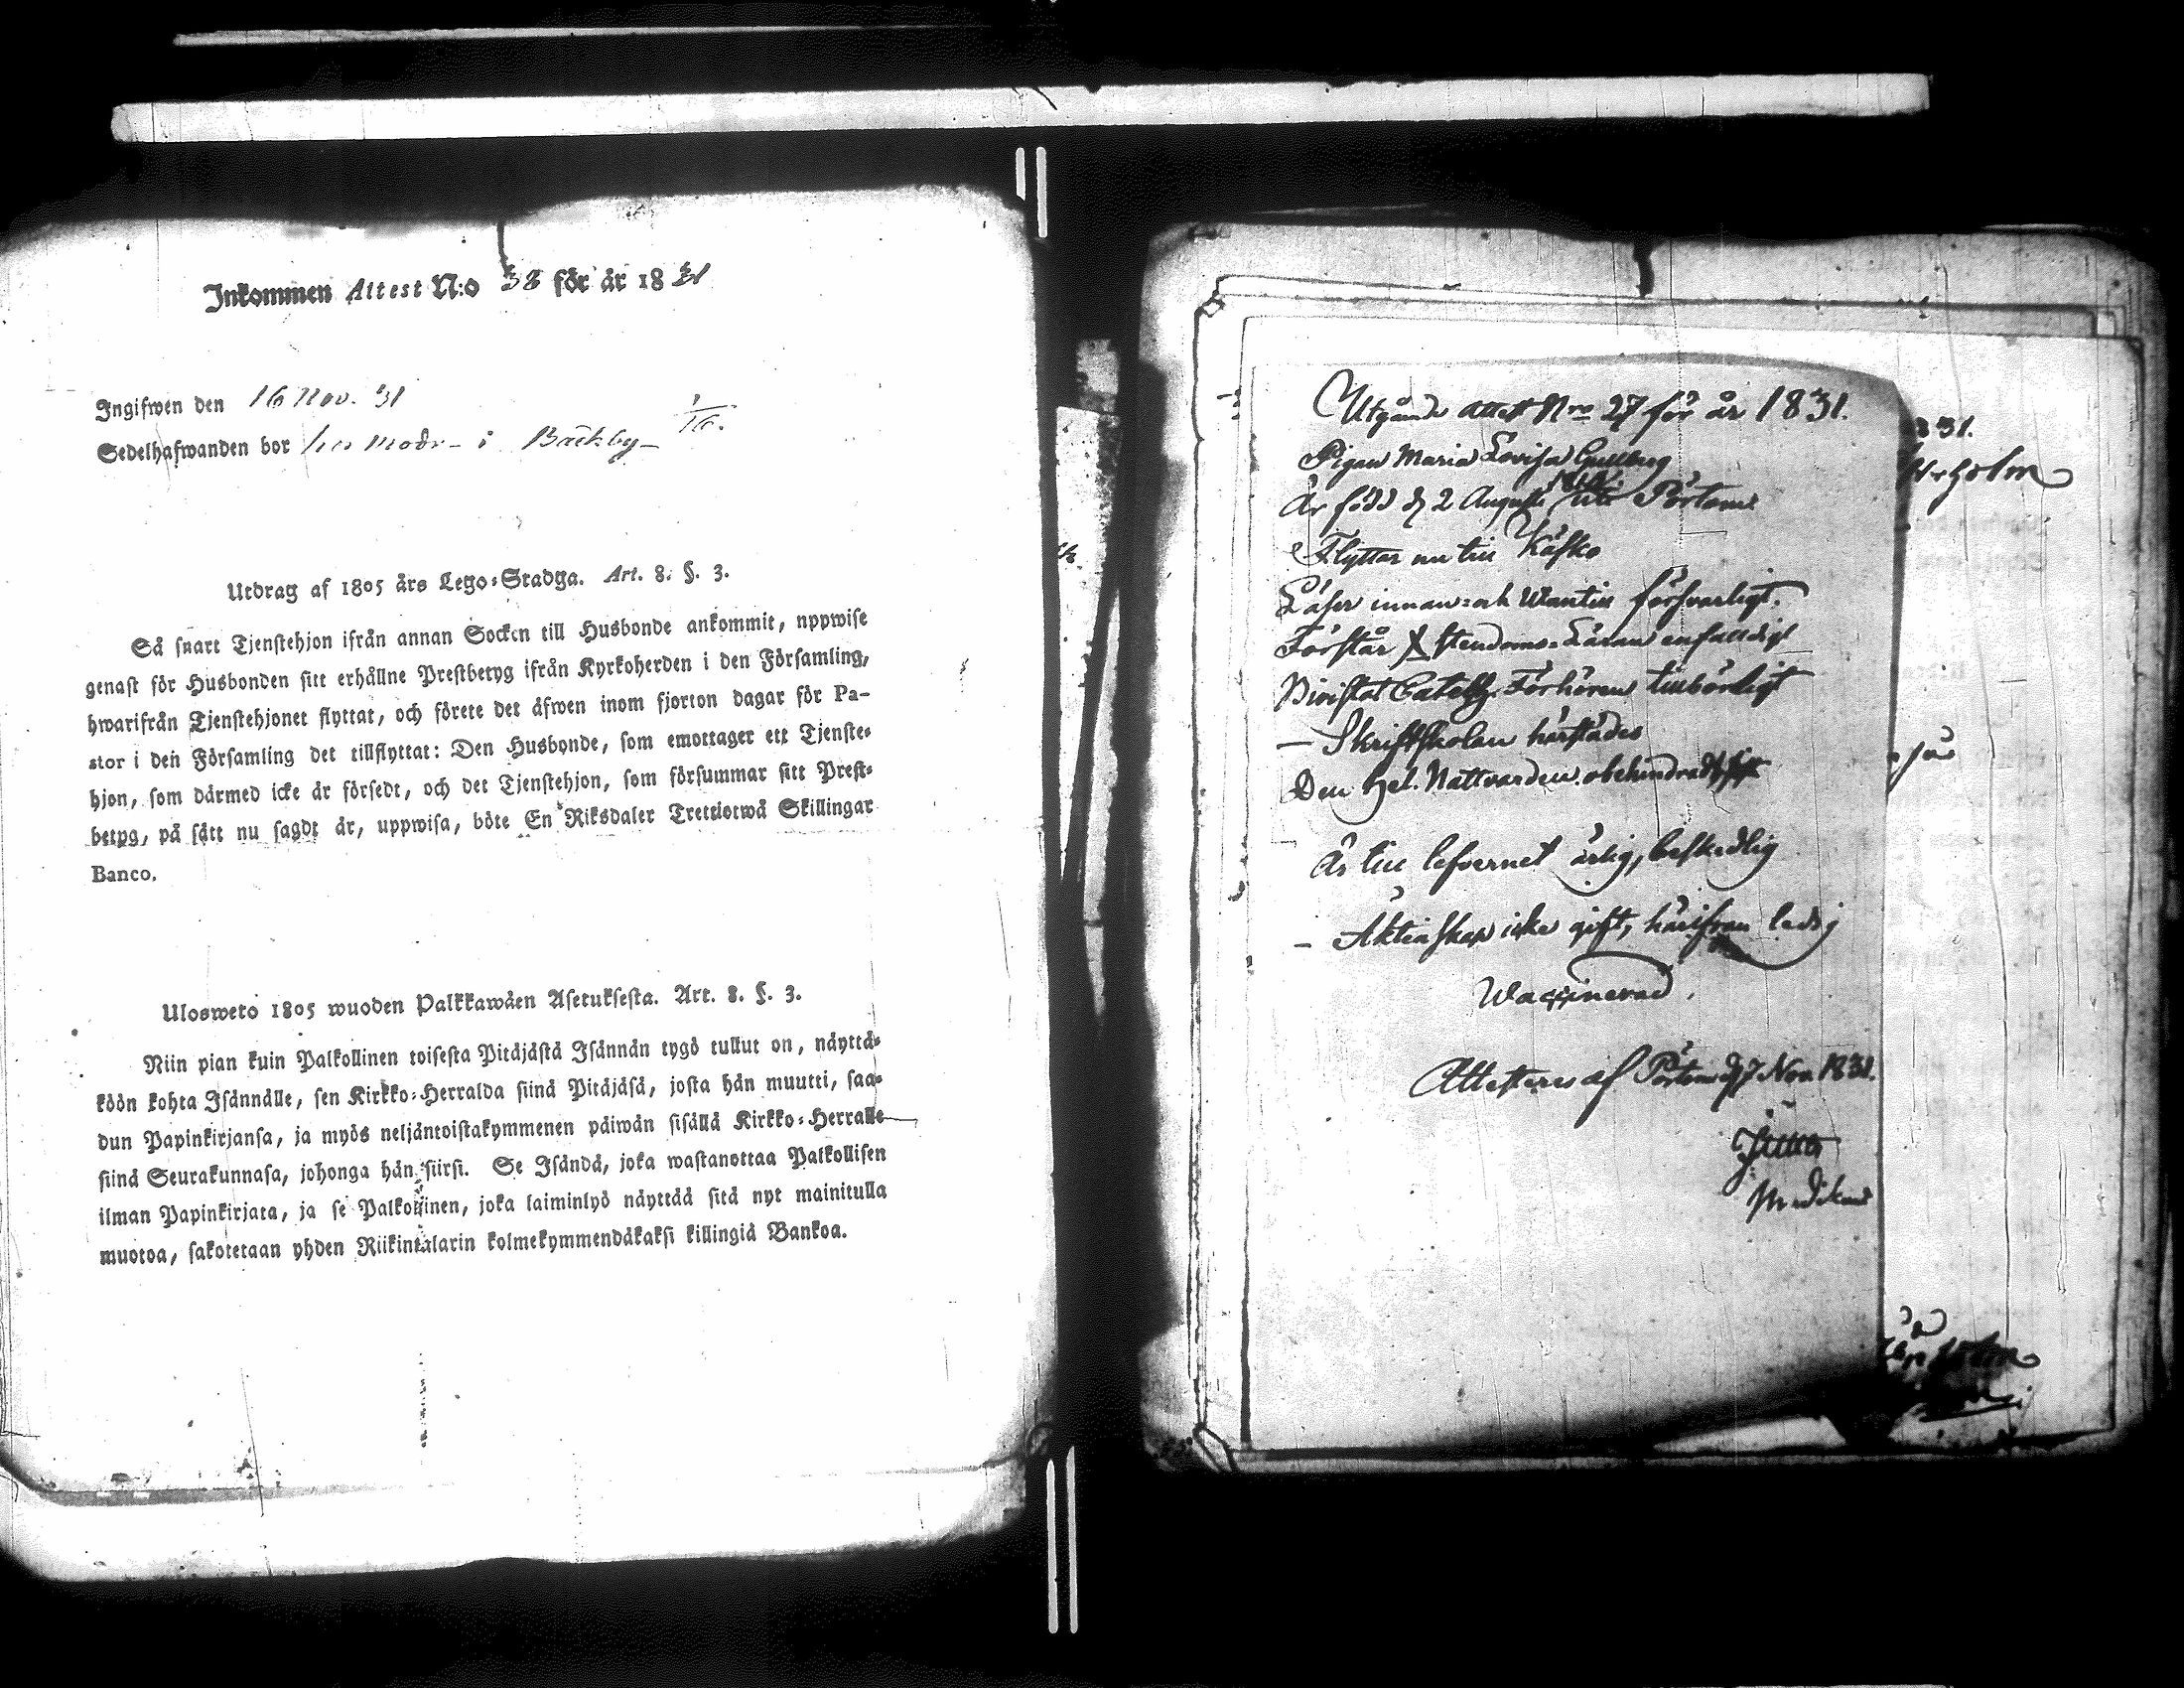 Inkommen Attest N:o 38 för år 1831
Ingifwen den 16 Nov. 31
Sedelhafwanden bor hos modr i Bäckby
Utdrag af 1805 års Lego-Stadga. Art. 8. §. 3.
Så snart Tjenstehjon ifrån annan Socken till Husbonde ankommit, uppwise
genast för Husbonden sitt erhållne Prestbetyg ifrån Kyrkoherden i den Församling,
hwarifrån Tjenstehjonet flyttat, och förete det äfwen inom fjorton dagar för Pa-
stor i den Församling det tillflyttat: Den Husbonde, som emottager ett Tjenste-
hjon, som därmed icke är försedt, och det Tjenstehjon, som försummar sitt Prest-
betyg, på sätt nu sagdt är, uppwisa, böte En Riksdaler Trettiotwå Skillingar
Banco.
Ulosweto 1805 wuoden Palkkawäen Asetuksesta. Art. 8. §. 3.
Niin pian kuin Palkollinen toisesta Pitäjästä Isännän tygö tullut on, näyttä-
köön kohta Isännälle, sen Kirkko-Herralda siinä Pitäjäsä, josta hän muutti, saa-
dun Papinkirjansa, ja myös neljäntoistakymmenen päiwän sisällä Kirkko-Herralle
siinä Seurakunnasa, johonga hän siirsi. Se Isändä, joka wastanottaa Palkollisen
ilman Papinkirjata, ja se Palkollinen, joka laiminlyö näyttää sitä nyt mainitulla
muotoa, sakotetaan yhden Riikintalarin kolmekymmendäkaksi killingiä Bankoa.
Utgånde Attest Nro 27 för år 1831.
Pigan Maria Lovisa Gullberg
Är född d 2 Augusti uti Pörtom
Flyttar nu till Käfsko
Läser innan- och utantill försvarligt.
Förstår Xstendoms-Läran enfaldigt
Bivistat Catech. Förhören tillbörligt
— Skriftskolan härstädes
Den Hel. Nattvarden obehindradt
Är till lefvernet ärlig, beskedlig
— Äktenskap icke gift, härifrån ledig
Waccinerad.
Attesteres af Pörtom d 7 Nov. 1831.
31.
holm